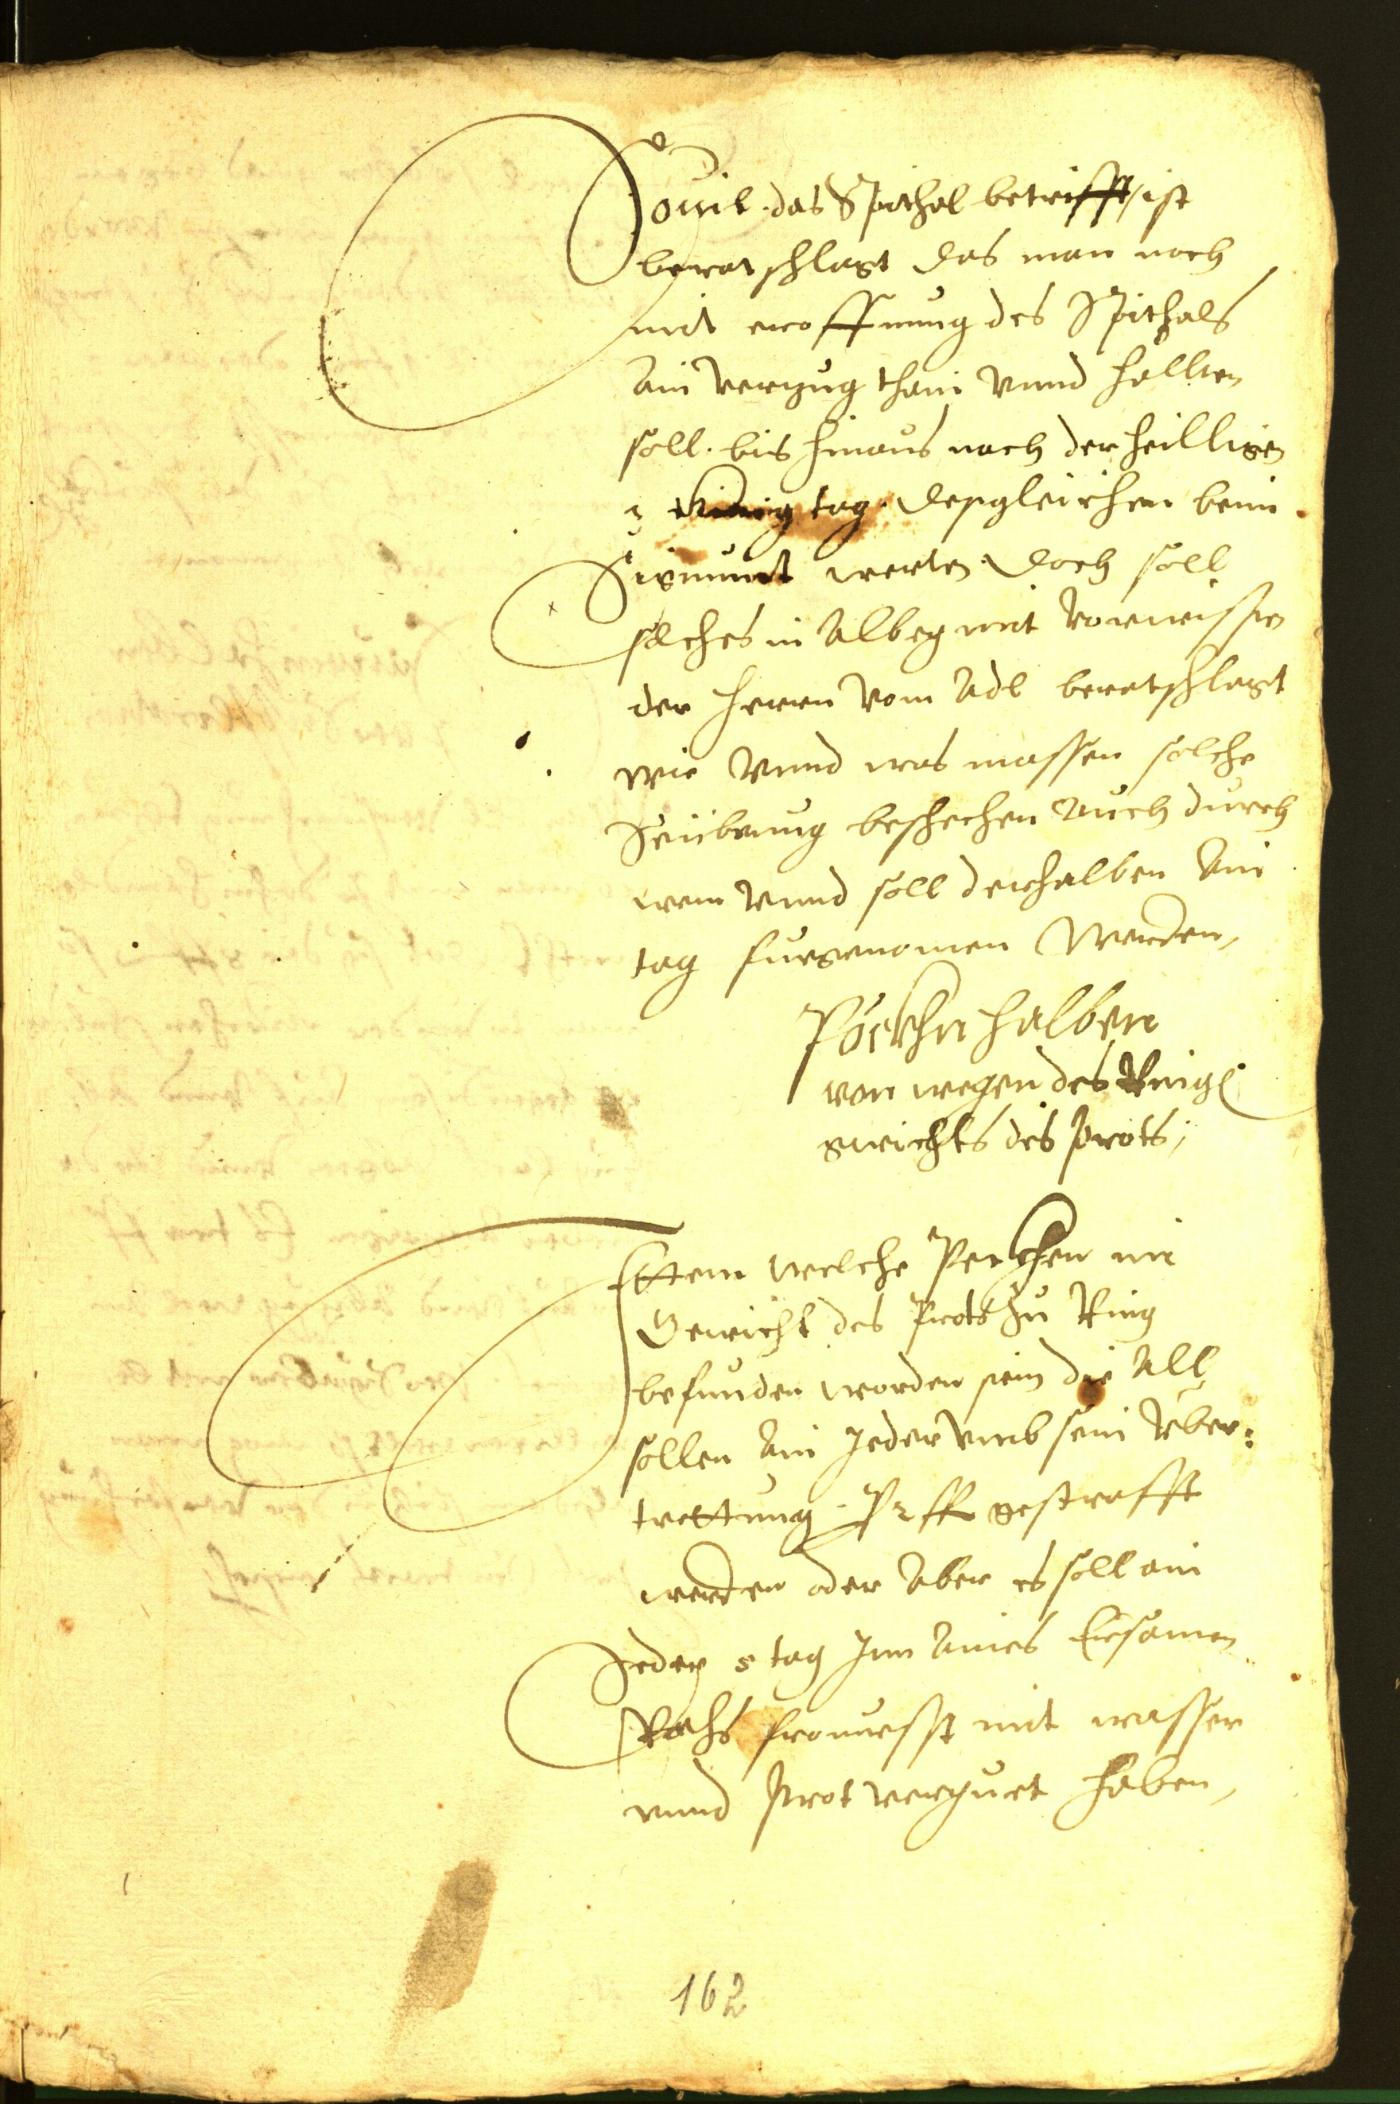 Souil das Spithal betrifft / ist
beratschlagt das man noch
mit eroffnung des Spithals
ain verzug thain vnnd hallten
soll. bis hinaus nach der heilligen
3 Khinig tag. dessgleichen beim
Sigmundt werten. Doch soll
solches in Albeg mit vorwissen
der herrn vom Adl beratschlagt
wie vnnd was massen solche
Seuberung beschechen auch durch
wem vnnd soll derhalben Ain
tag furgenomen Werden,
Pöckhn halben
von wegen des Ring
gwichts des Prots,
Ittem welche Peckhen mit
Gewicht des Prots zu Ring
befunden worden sein die All
sollen Ain Jeder vmb sein Vber:
trettung P 2 ff gestrafft
werden oder Aber es soll ain
Jeder 8 tag Inn Aines Ersamen
Raths fronuesst mit wasser
vnnd Prot verpuest haben,
162